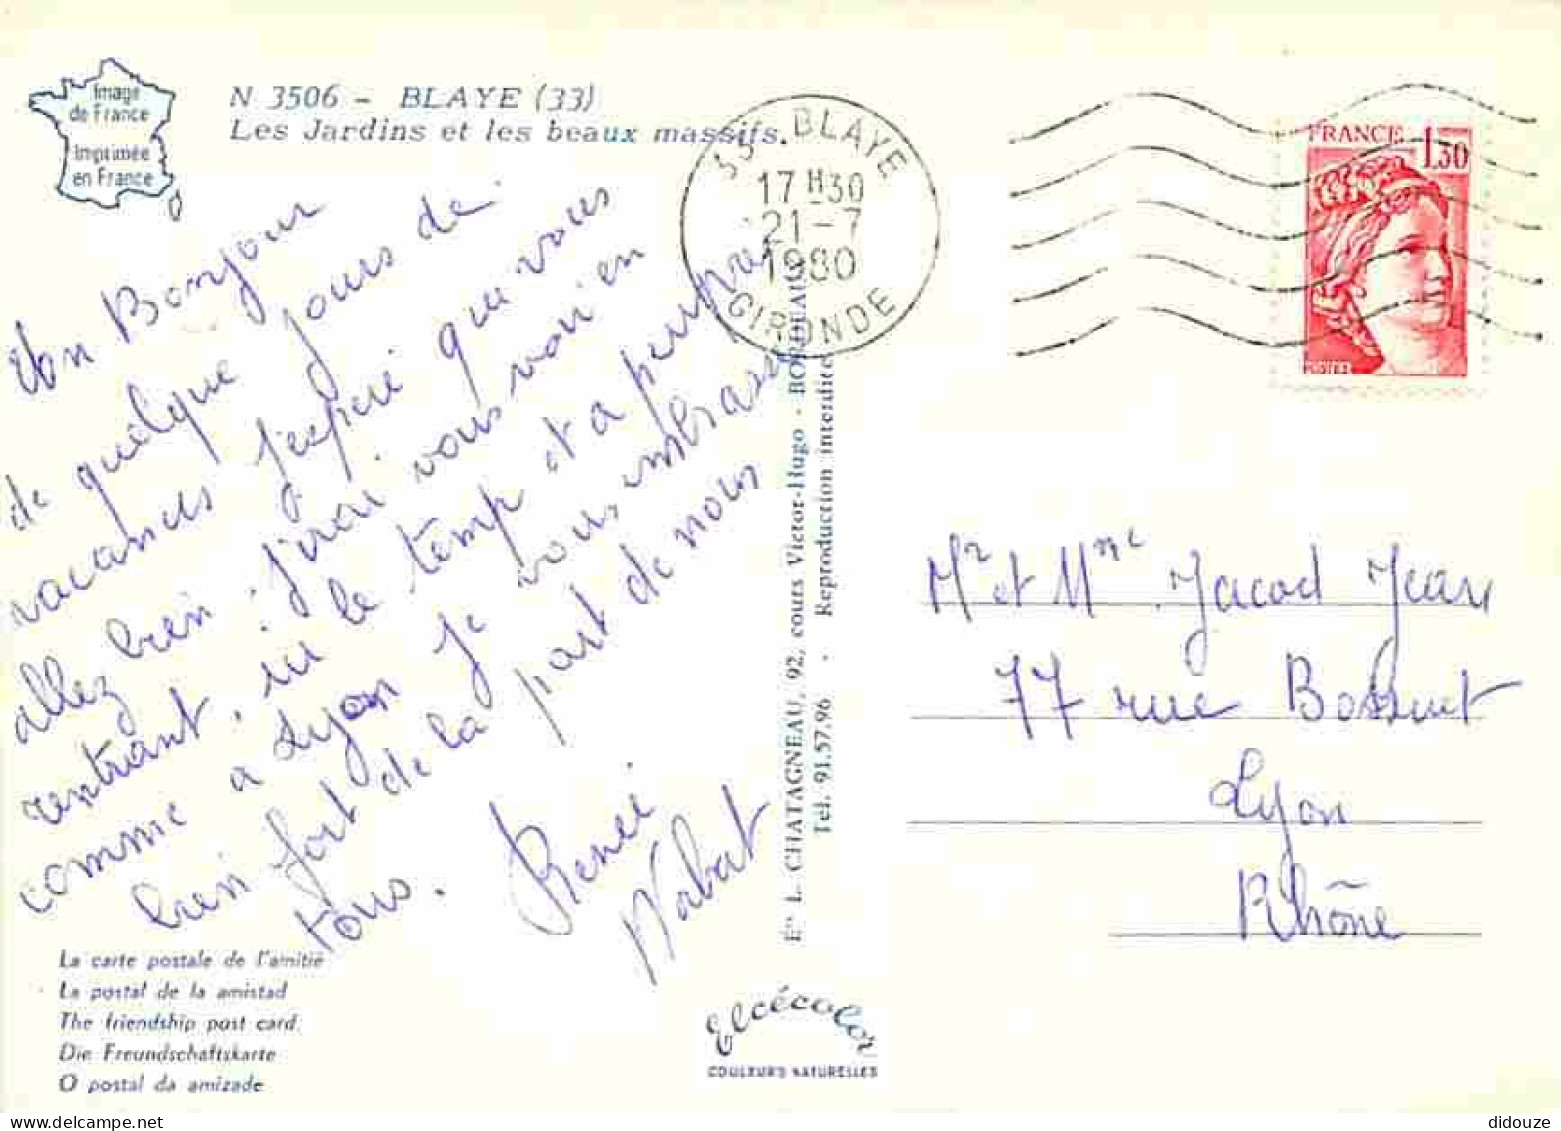 Image
de France
Imprimée
en France
N 3506 - BLAYE (33)
Les Jardins et les beaux massifs.
Un Bonjour
de quelque jours de
vacances j'espère que vous
allez bien. j'irai vous voir en
rentrant. ici le temp et a peuprè
comme a Lyon Je vous embrasse
bien fort de la part de nous
tous.
Renée
Norbat
La carte postale de l'amitié
La postal de la amistad
The friendship post card
Die Freundschaftskarte
O postal da amizade
33 BLAYE
17 H 30
21-7
1980
GIRONDE
Én L. CHATAGNEAU, 92, cours Victor-Hugo - BORDEAUX
Tél. 91.57.96 - Reproduction interdite
Elcécolor
COULEURS NATURELLES
FRANCE 1,30
POSTES
Mr et Mme Jacod Jean
77 rue Bossuet
Lyon
Rhône
didouze